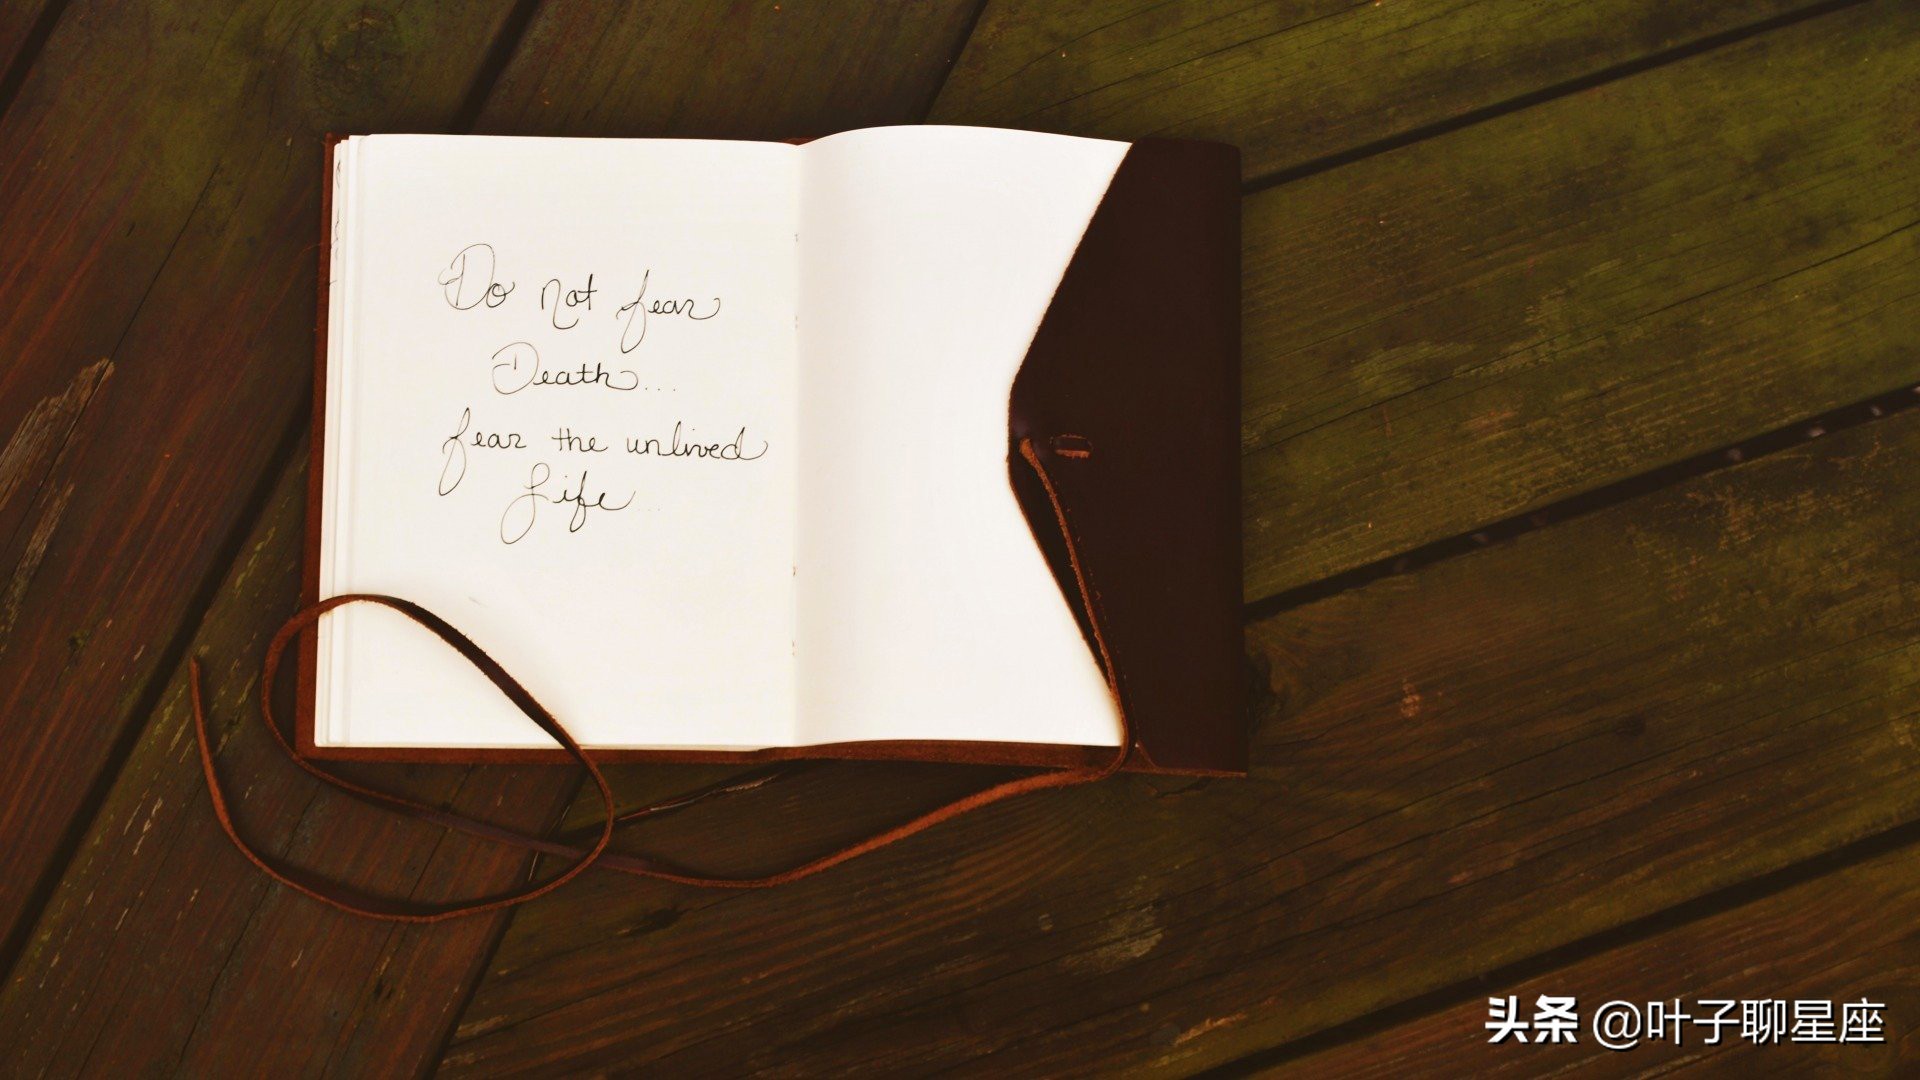 Do Not fear
Death...
fear the unlived
Life...
头条 @叶子聊星座